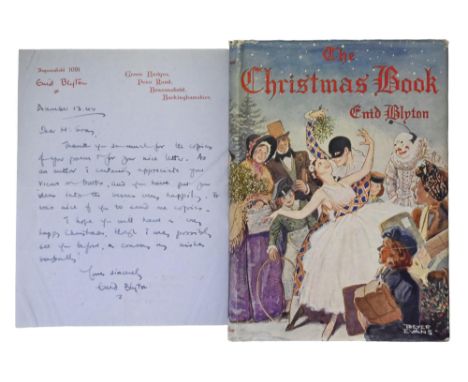 Beaconsfield 1091
Enid Blyton
Green Hedges,
Penn Road,
Beaconsfield,
Buckinghamshire.
December 13.
Dear Mr.
Thank you so much for the copies
of your poems & for your nice letter. As
an author I certainly appreciate your
views on books, and you have put your
ideas into the verses very happily. It
was nice of you to send me copies.
I hope you will have a very
happy Christmas, though I may possibly
see you before, & convey my wishes
verbally!
Yours sincerely
Enid Blyton
The
Christmas Book
Enid Blyton
TREYER
EVANS